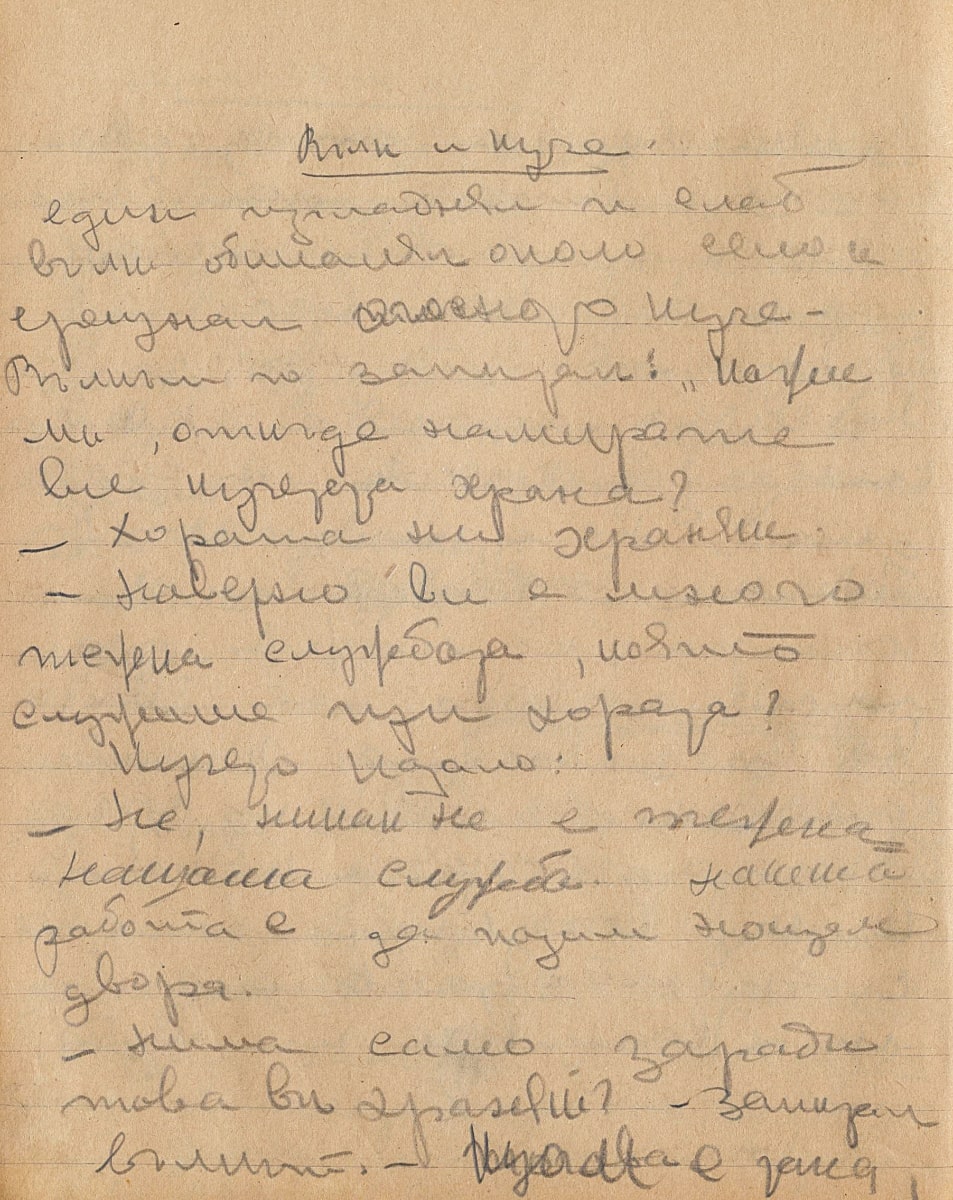 Вълк и куче.
един изгладнял и слаб
вълк обикалял около село и
срещнал охоено куче –
Вълкът го запитал: „Кажи
ми, откъде намирате
вие кучетата храна?
– Хората ни хранят.
– Наверно ви е много
тежка службата, която
служите при хората?
Кучето казало:
– Не, никак не е тежка
нашата служба. нашта
работа е да пазим нощем
двора.
– Нима само заради
това ви хранят? – Запитал
вълкът. – е така,